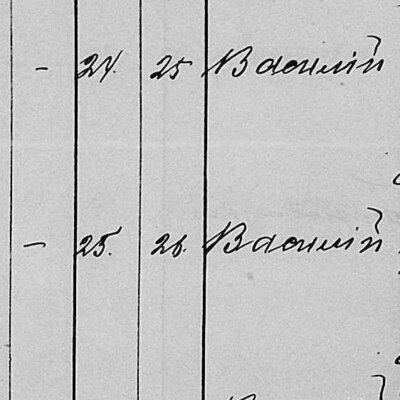 - 24. 25 Василій
- 25. 26. Василій